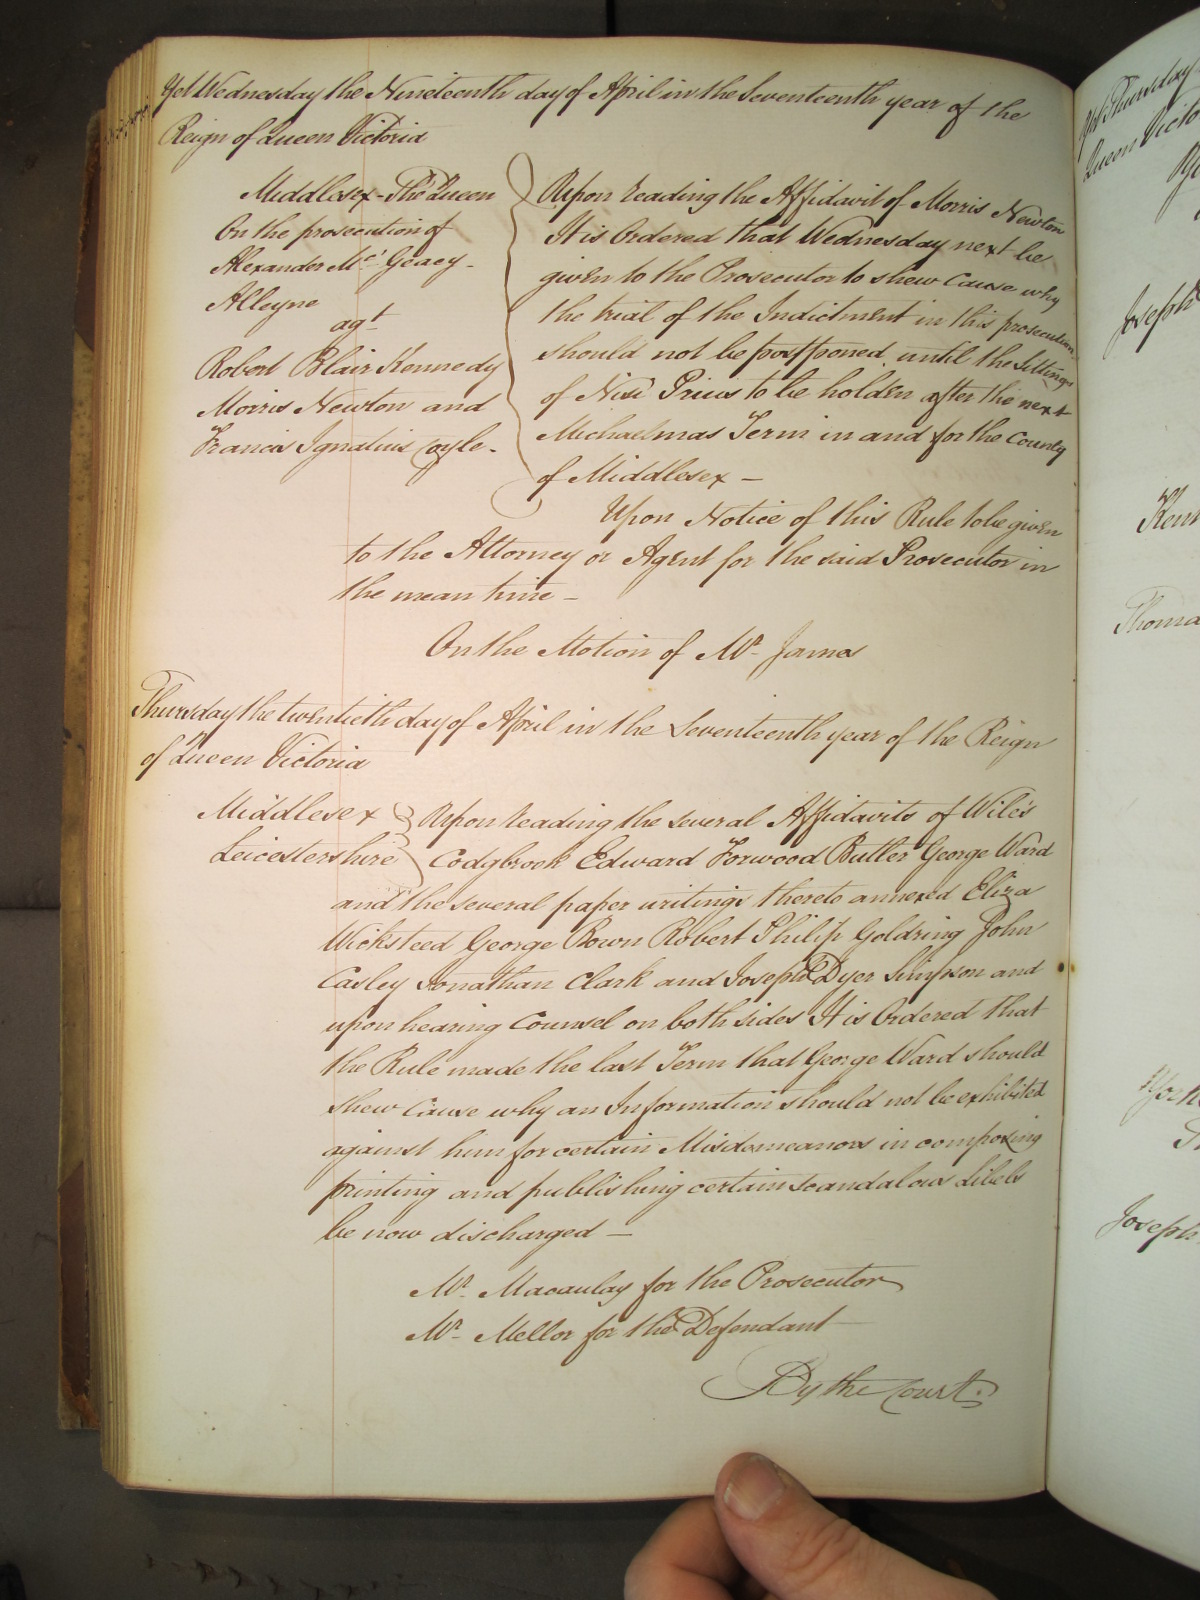 Yet Wednesday the Nineteenth day of April in the Seventeenth year of the
Reign of Queen Victoria
Middlesex - The Queen
On the prosecution of
Alexander Mc Geacy
Alleyne
agt
Robert Blair Kennedy
Morris Newton and
Francis Ignatius Coyle -
Upon reading the Affidavit of Morris Newton
It is Ordered that Wednesday next be
given to the Prosecutor to shew cause why
the trial of the Indictment in this prosecution
should not be postponed until the Sittings
of Nisi Prius to be holden after the next
Michaelmas Term in and for the County
of Middlesex -
Upon Notice of this Rule to be given
to the Attorney or Agent for the said Prosecutor in
the mean time -
On the Motion of Mr. James
Thursday the twentieth day of April in the Seventeenth year of the Reign
of Queen Victoria
Middlesex
Leicestershire
Upon reading the several Affidavits of
Edward Forwood Butler George Ward
and the several paper writings thereto annexed Eliza
Wicksteed George Bown Robert Philip Goldring John
Casley Jonathan Clark and Joseph Dyer Simpson and
upon hearing Counsel on both sides It is Ordered that
the Rule made the last Term that George Ward should
shew cause why an Information should not be exhibited
against him for certain Misdemeanors in composing
printing and publishing certain scandalous Libels
be now discharged -
Mr. Macaulay for the Prosecutor
Mr. Mellor for the Defendant
By the Court.
Yet Thursday
Queen Victo
Joseph
Kent
Thoma
Joseph